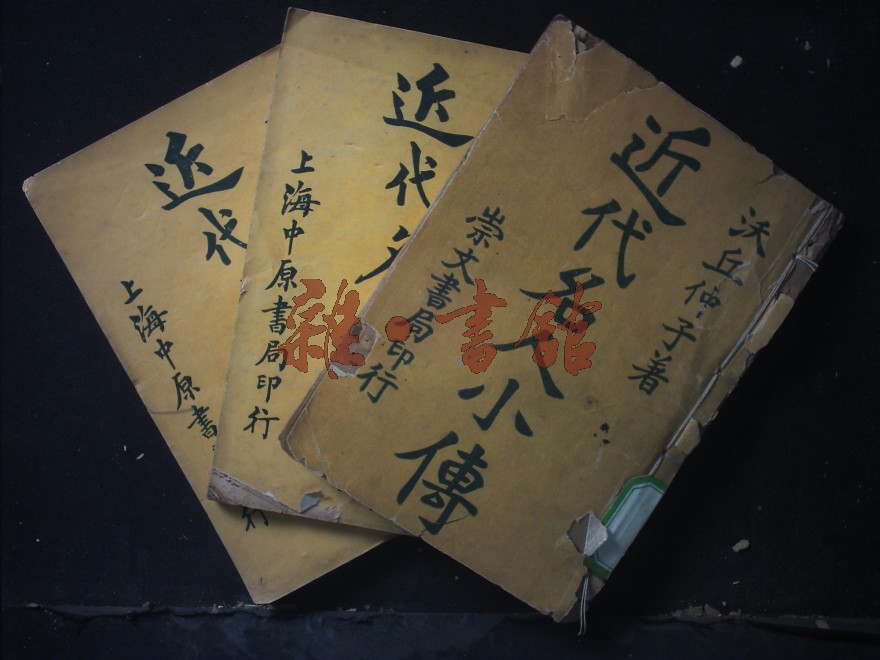 沃丘仲子著
近代名人小傳
崇文書局印行
近代
上海中原書局印行
近代
上海中原書
行
雜·書館